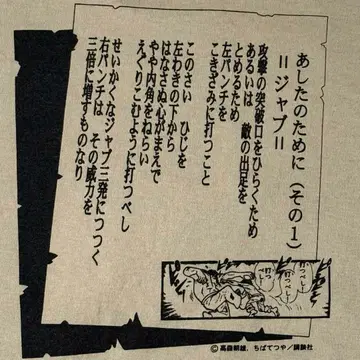 あしたのために(その1)
=ジャブ=
攻撃の突破口をひらくため
あるいは 敵の出足を
とめるため
左パンチを
こきざみに打つこと
このさい ひじを
左わきの下から
はなさぬ心がまえで
やや内角をねらい
えぐりこむように打つべし
せいかくなジャブ三発につづく
右パンチは その威力を
三倍に増すものなり
打つべし
打つべし
©高森朝雄、ちばてつや/講談社